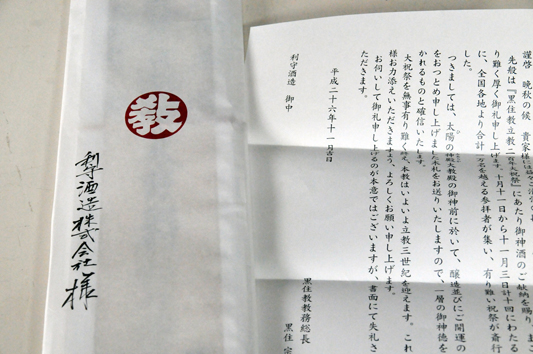 謹啓 晩秋の候 貴家様に
先般は『黒住教立教二百年大祝祭』にあたり御神酒のご献納を賜り、ま
り難く厚く御礼申し上げます。十月十一日から十一月三日計十回にわたる
に、全国各地より合計 万名を越える参拝者が集い、有り難い祝祭が斎行
した。
つきましては、太陽の 大教殿の御神前に於いて、醸造並びにご開運の
をおつとめ申し上げました木札をお送りいたしますので、一層の御神徳を
かれるものと確信いたします。
大祝祭を無事有り難く 、本教はいよいよ立教三世紀を迎えます。これ
様お力添えいただきますよう、よろしくお願い申し上げます。
お伺いして御礼申し上げるのが本意ではございますが、書面にて失礼さ
ただきます。
平成二十六年十一月吉日
利守酒造 御中
黒住教教務総長
黒住 宗
教
利守酒造株式会社様